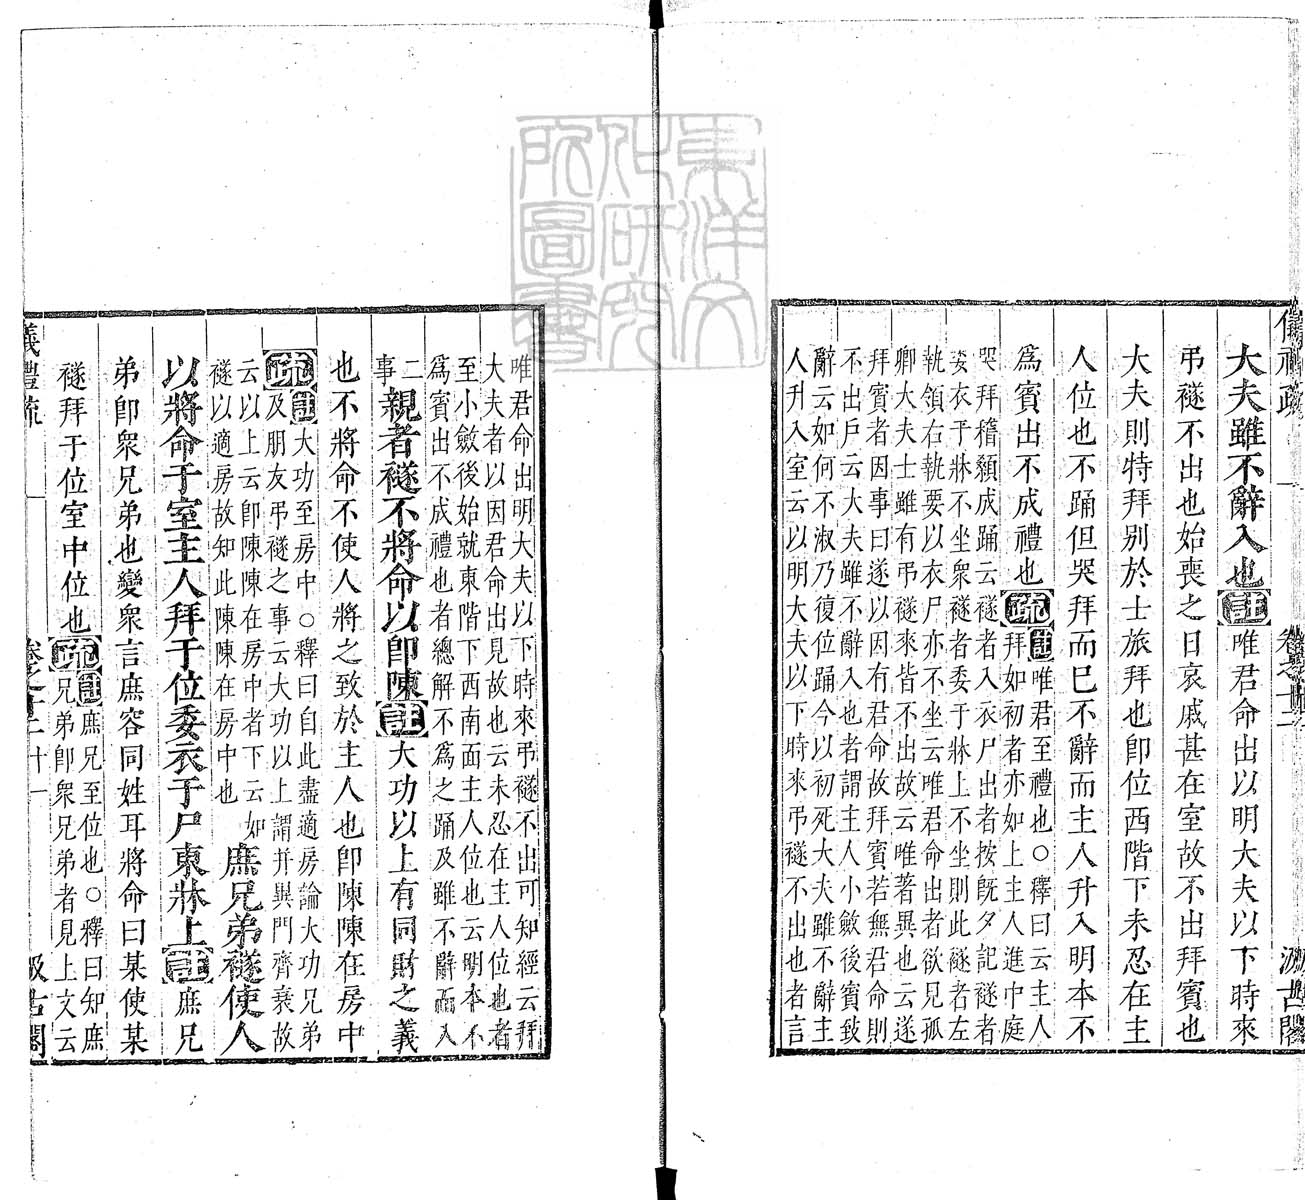 儀禮疏 卷之十二 汲古閣
大夫雖不辭入也註唯君命出以明大夫以下時來
弔襚不出也始喪之日哀戚甚在室故不出拜賓也
大夫則特拜別於士旅拜也卽位西階下未忍在主
人位也不踊但哭拜而巳不辭而主人升入明本不
爲賓出不成禮也疏註唯君至禮也○釋曰云主人
拜如初者亦如上主人進中庭
哭拜稽顙成踊云襚者入衣尸出者按旣夕記襚者
委衣于牀不坐衆襚者委于牀上不坐則此襚者左
執領右執要以衣尸亦不坐云唯君命出者欲見孤
卿大夫士雖有弔襚來皆不出故云唯著異也云遂
拜賓者因事曰遂以因有君命故拜賓若無君命則
不出戶云大夫雖不辭入也者謂主人小斂後賓致
辭云如何不淑乃復位踊今以初死大夫雖不辭主
人升入室云以明大夫以下時來弔襚不出也者言
唯君命出明大夫以下時來弔襚不出可知經云拜
大夫者以因君命出見故也云未忍在主人位也者
至小斂後始就東階下西南面主人位也云明本不
爲賓出不成禮也者總解不爲之踊及雖不辭而入
二
事親者襚不將命以卽陳註大功以上有同財之義
也不將命不使人將之致於主人也卽陳陳在房中
疏註大功至房中○釋曰自此盡適房論大功兄弟
及朋友弔襚之事云大功以上謂并異門齊衰故
云以上云卽陳陳在房中者下云如
襚以適房故知此陳陳在房中也庶兄弟襚使人
以將命于室主人拜于位委衣于尸東牀上註庶兄
弟卽衆兄弟也變衆言庶容同姓耳將命曰某使某
襚拜于位室中位也疏註庶兄至位也○釋曰知庶
兄弟卽衆兄弟者見上文云
儀禮疏 卷之十二 十一 汲古閣
東洋文化研究所圖書